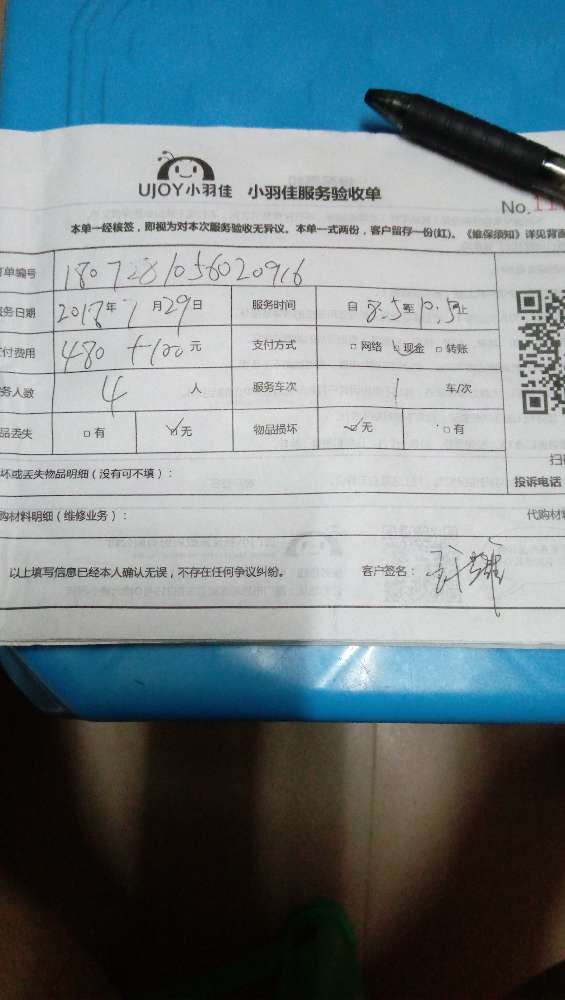 UJOY小羽佳 小羽佳服务验收单
No.11
本单一经核签,即视为对本次服务验收无异议。本单一式两份,客户留存一份(红)、《维保须知》详见背面
单编号 1807281056020916
务日期 2018年7月29日 服务时间 自8.5至10.5止
付费用 480+100元 支付方式 □网络 □现金 □转账
务人数 4人 服务车次 1车/次
品丢失 □有 ☑无 物品损坏 ☑无 □有
坏或丢失物品明细(没有可不填):
投诉电话
购材料明细(维修业务): 代购材料
以上填写信息已经本人确认无误,不存在任何争议纠纷。 客户签名: